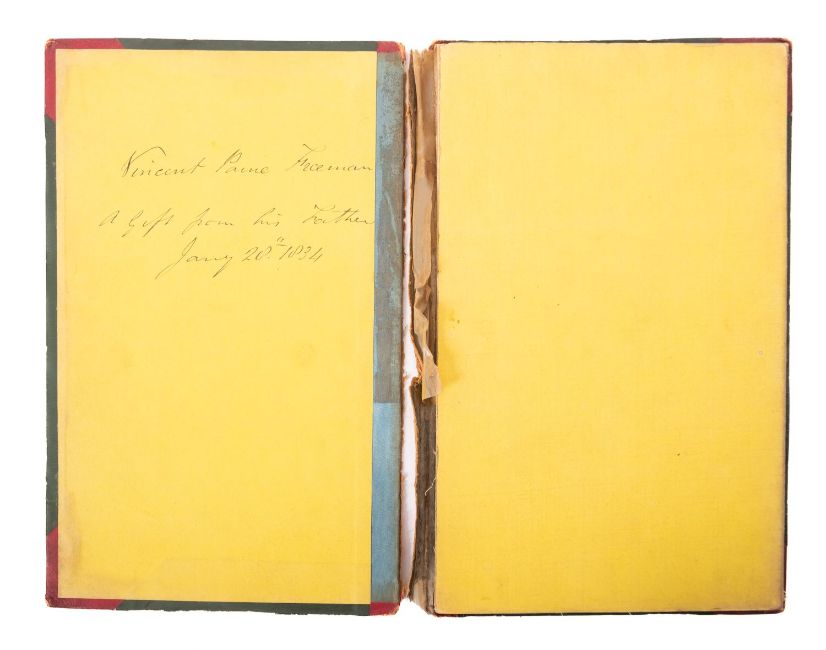 Vincent Paine Freeman
A Gift from his Father
Jany 28th 1834